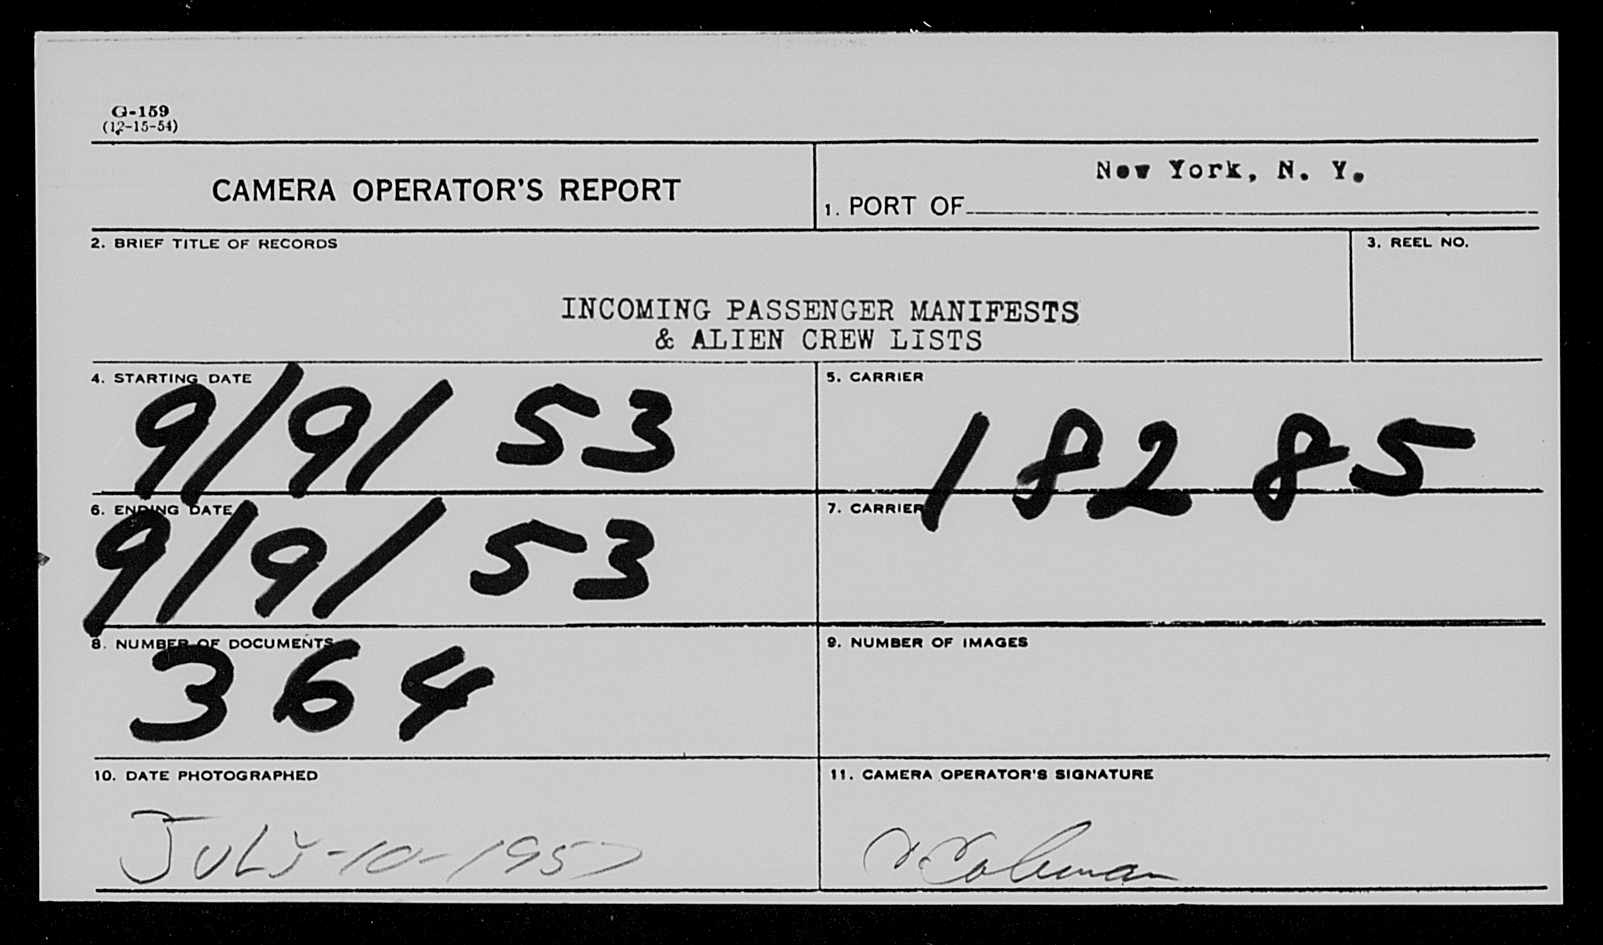 G-159
(12-15-54)
CAMERA OPERATOR'S REPORT
New York, N. Y.
1. PORT OF
2. BRIEF TITLE OF RECORDS
3. REEL NO.
INCOMING PASSENGER MANIFESTS
& ALIEN CREW LISTS
4. STARTING DATE
9/9/53
5. CARRIER
18285
6. ENDING DATE
9/9/53
7. CARRIER
8. NUMBER OF DOCUMENTS
364
9. NUMBER OF IMAGES
10. DATE PHOTOGRAPHED
JULY-10-1957
11. CAMERA OPERATOR'S SIGNATURE
Coleman